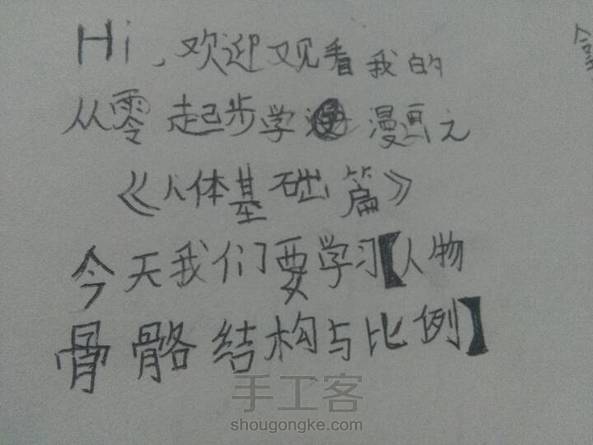 Hi，欢迎观看我的
从零起步学漫画之
《人体基础篇》
今天我们要学习【人物
骨骼结构与比例】
手工客
shougongke.com